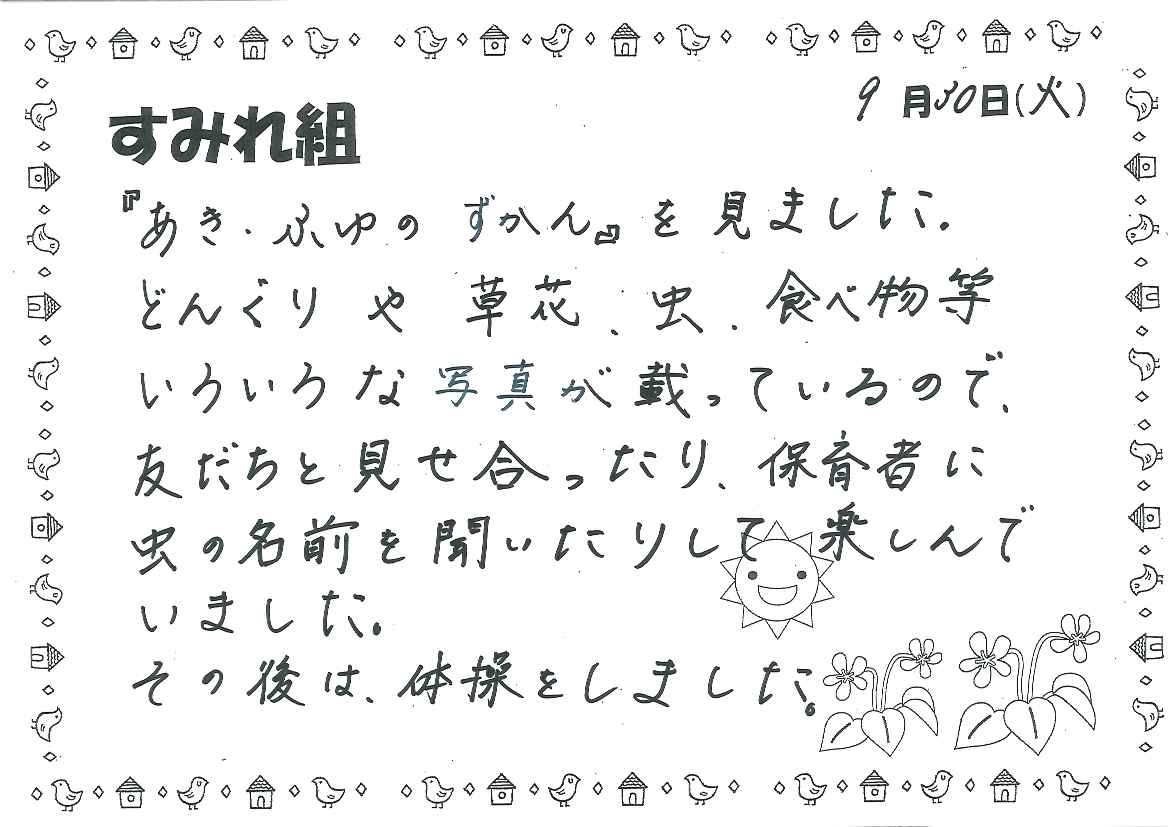 9月30日(火)
すみれ組
『あき・ふゆのずかん』を見ました。
どんぐりや草花、虫、食べ物等
いろいろな写真が載っているので、
友だちと見せ合ったり、保育者に
虫の名前を聞いたりして楽しんで
いました。
その後は、体操をしました。